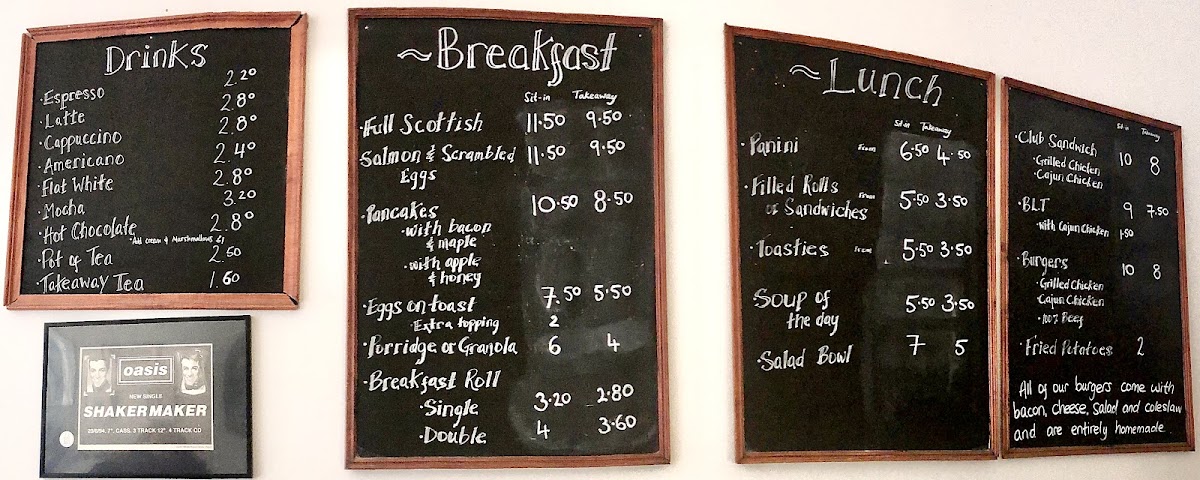 Drinks
·Espresso 2.20
·Latte 2.80
·Cappuccino 2.80
·Americano 2.40
·Flat White 2.80
·Mocha 3.20
·Hot Chocolate 2.80
·Add cream & Marshmallows £1
·Pot of Tea 2.50
·Takeaway Tea 1.60
oasis
NEW SINGLE
SHAKERMAKER
20/6/94. 7", CASS, 3 TRACK 12". 4 TRACK CD
~Breakfast
Sit-in Takeaway
·Full Scottish 11.50 9.50
·Salmon & Scrambled 11.50 9.50
Eggs
·Pancakes 10.50 8.50
·with bacon
& maple
·with apple
& honey
·Eggs on toast 7.50 5.50
·Extra topping 2
·Porridge or Granola 6 4
·Breakfast Roll
·Single 3.20 2.80
·Double 4 3.60
~Lunch
Sit-in Takeaway
·Panini From 6.50 4.50
·Filled Rolls From 5.50 3.50
or Sandwiches
·Toasties From 5.50 3.50
·Soup of 5.50 3.50
the day
·Salad Bowl 7 5
Sit-in Takeaway
·Club Sandwich 10 8
·Grilled Chicken
·Cajun Chicken
·BLT 9 7.50
·With Cajun Chicken 1.50
·Burgers 10 8
·Grilled Chicken
·Cajun Chicken
·100% Beef
·Fried Potatoes 2
All of our burgers come with
bacon, cheese, salad and coleslaw
and are entirely homemade.